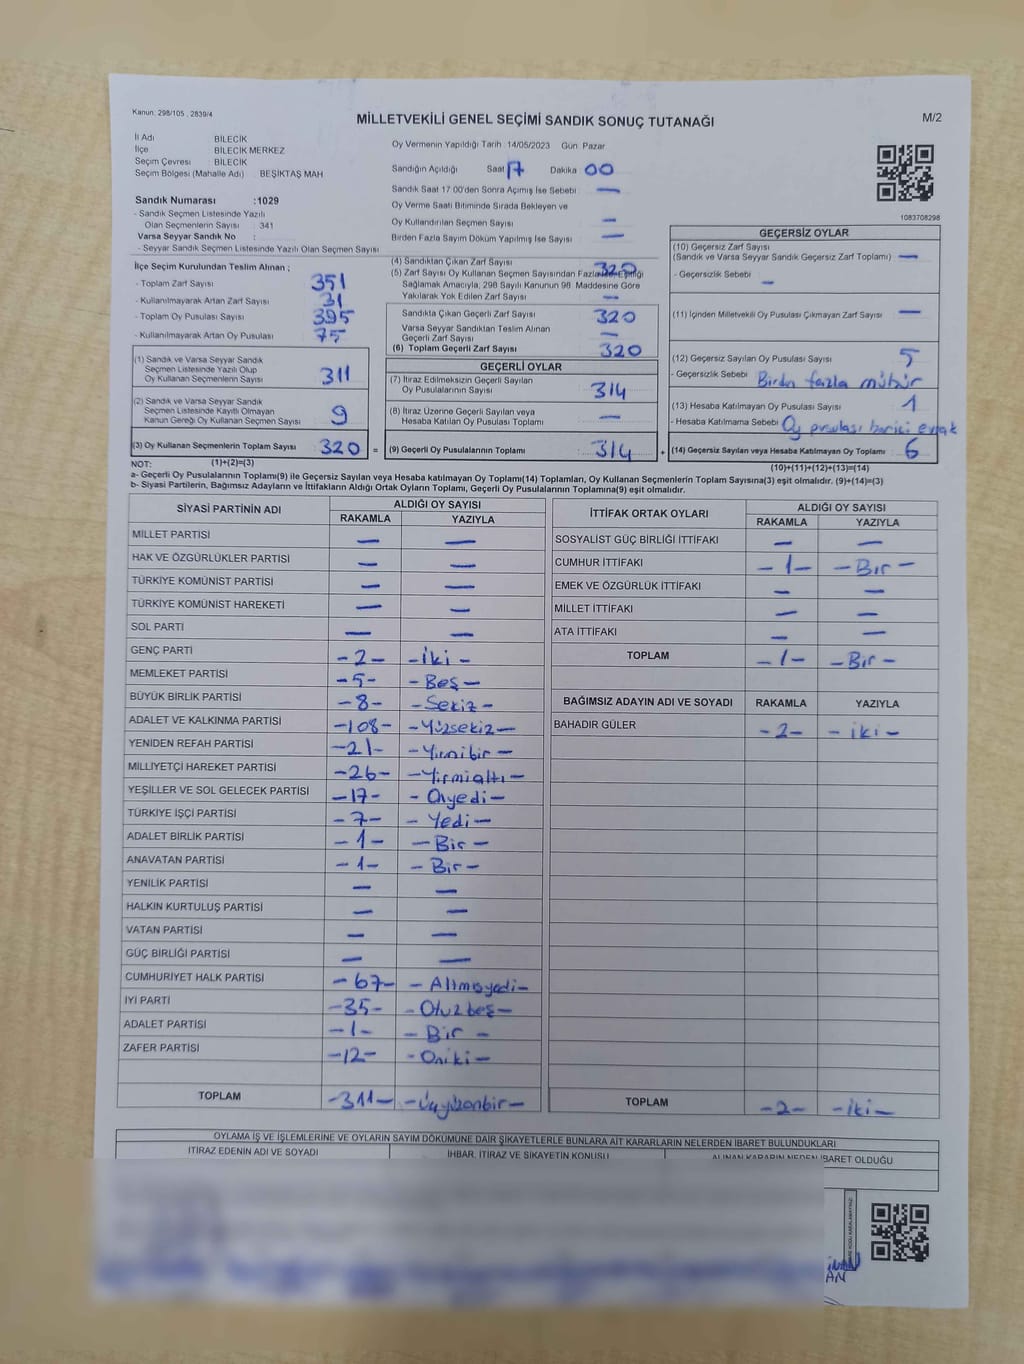 Kanun: 298/105 , 2839/4
MİLLETVEKİLİ GENEL SEÇİMİ SANDIK SONUÇ TUTANAĞI
M/2
İl Adı BİLECİK
İlçe BİLECİK MERKEZ
Seçim Çevresi BİLECİK
Seçim Bölgesi (Mahalle Adı) BEŞİKTAŞ MAH
Oy Vermenin Yapıldığı Tarih 14/05/2023 Gün Pazar
Sandığın Açıldığı Saat 17 Dakika 00
Sandık Saat 17:00'den Sonra Açımış İse Sebebi —
Oy Verme Saati Bitiminde Sırada Bekleyen ve
Oy Kullandırılan Seçmen Sayısı —
Birden Fazla Sayım Döküm Yapılmış İse Sayısı —
1083708298
Sandık Numarası :1029
- Sandık Seçmen Listesinde Yazılı
Olan Seçmenlerin Sayısı : 341
Varsa Seyyar Sandık No :
- Seyyar Sandık Seçmen Listesinde Yazılı Olan Seçmen Sayısı
İlçe Seçim Kurulundan Teslim Alınan ;
- Toplam Zarf Sayısı 351
- Kullanılmayarak Artan Zarf Sayısı 31
- Toplam Oy Pusulası Sayısı 395
- Kullanılmayarak Artan Oy Pusulası 75
(1) Sandık ve Varsa Seyyar Sandık
Seçmen Listesinde Yazılı Olup
Oy Kullanan Seçmenlerin Sayısı 311
(2) Sandık ve Varsa Seyyar Sandık
Seçmen Listesinde Kayıtlı Olmayan
Kanun Gereği Oy Kullanan Seçmen Sayısı 9
(3) Oy Kullanan Seçmenlerin Toplam Sayısı 320 =
(4) Sandıktan Çıkan Zarf Sayısı 320
(5) Zarf Sayısı Oy Kullanan Seçmen Sayısından Fazla İse, Eşitliği
Sağlamak Amacıyla, 298 Sayılı Kanunun 98. Maddesine Göre
Yakılarak Yok Edilen Zarf Sayısı —
Sandıkta Çıkan Geçerli Zarf Sayısı 320
Varsa Seyyar Sandıktan Teslim Alınan
Geçerli Zarf Sayısı —
(6) Toplam Geçerli Zarf Sayısı 320
GEÇERLİ OYLAR
(7) İtiraz Edilmeksizin Geçerli Sayılan
Oy Pusulalarının Sayısı 314
(8) İtiraz Üzerine Geçerli Sayılan veya
Hesaba Katılan Oy Pusulaları Toplamı —
(9) Geçerli Oy Pusulalarının Toplamı 314 +
GEÇERSİZ OYLAR
(10) Geçersiz Zarf Sayısı
(Sandık ve Varsa Seyyar Sandık Geçersiz Zarf Toplamı) —
- Geçersizlik Sebebi —
(11) İçinden Milletvekili Oy Pusulası Çıkmayan Zarf Sayısı —
(12) Geçersiz Sayılan Oy Pusulası Sayısı 5
- Geçersizlik Sebebi Birden fazla mühür
(13) Hesaba Katılmayan Oy Pusulası Sayısı 1
- Hesaba Katılmama Sebebi Oy pusulası harici evrak
(14) Geçersiz Sayılan veya Hesaba Katılmayan Oy Toplamı 6
NOT: (1)+(2)=(3)
(10)+(11)+(12)+(13)=(14)
a- Geçerli Oy Pusulalarının Toplamı(9) ile Geçersiz Sayılan veya Hesaba katılmayan Oy Toplamı(14) Toplamları, Oy Kullanan Seçmenlerin Toplam Sayısına(3) eşit olmalıdır. (9)+(14)=(3)
b- Siyasi Partilerin, Bağımsız Adayların ve İttifakların Aldığı Ortak Oyların Toplamı, Geçerli Oy Pusulalarının Toplamına(9) eşit olmalıdır.
SİYASİ PARTİNİN ADI ALDIĞI OY SAYISI
RAKAMLA YAZIYLA
MİLLET PARTİSİ — —
HAK VE ÖZGÜRLÜKLER PARTİSİ — —
TÜRKİYE KOMÜNİST PARTİSİ — —
TÜRKİYE KOMÜNİST HAREKETİ — —
SOL PARTİ — —
GENÇ PARTİ -2- -İki-
MEMLEKET PARTİSİ -5- -Beş-
BÜYÜK BİRLİK PARTİSİ -8- -Sekiz-
ADALET VE KALKINMA PARTİSİ -108- -Yüzsekiz-
YENİDEN REFAH PARTİSİ -21- -Yirmibir-
MİLLİYETÇİ HAREKET PARTİSİ -26- -Yirmialtı-
YEŞİLLER VE SOL GELECEK PARTİSİ -17- -Onyedi-
TÜRKİYE İŞÇİ PARTİSİ -7- -Yedi-
ADALET BİRLİK PARTİSİ -1- -Bir-
ANAVATAN PARTİSİ -1- -Bir-
YENİLİK PARTİSİ — —
HALKIN KURTULUŞ PARTİSİ — —
VATAN PARTİSİ — —
GÜÇ BİRLİĞİ PARTİSİ — —
CUMHURİYET HALK PARTİSİ -67- -Altmışyedi-
İYİ PARTİ -35- -Otuzbeş-
ADALET PARTİSİ -1- -Bir-
ZAFER PARTİSİ -12- -Oniki-
TOPLAM -311- -Üçyüzonbir-
İTTİFAK ORTAK OYLARI ALDIĞI OY SAYISI
RAKAMLA YAZIYLA
SOSYALİST GÜÇ BİRLİĞİ İTTİFAKI — —
CUMHUR İTTİFAKI -1- -Bir-
EMEK VE ÖZGÜRLÜK İTTİFAKI — —
MİLLET İTTİFAKI — —
ATA İTTİFAKI — —
TOPLAM -1- -Bir-
BAĞIMSIZ ADAYIN ADI VE SOYADI RAKAMLA YAZIYLA
BAHADIR GÜLER -2- -iki-
TOPLAM -2- -iki-
OYLAMA İŞ VE İŞLEMLERİNE VE OYLARIN SAYIM DÖKÜMÜNE DAİR ŞİKAYETLERLE BUNLARA AİT KARARLARIN NELERDEN İBARET BULUNDUKLARI
İTİRAZ EDENİN ADI VE SOYADI İHBAR, İTİRAZ VE ŞİKAYETİN KONUSU ALINAN KARARIN NEDEN İBARET OLDUĞU